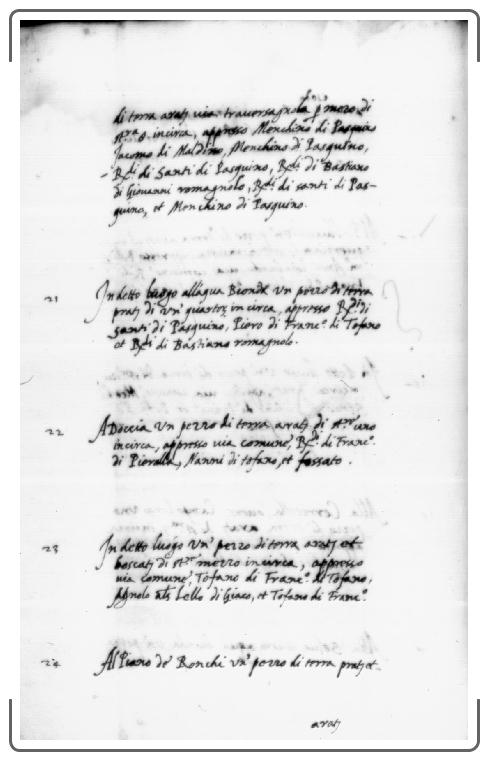 di terra arati via traversagnola p mezo di
stra 8 incirca, appresso Menchino di Pasquino
Jacomo di Maldino, Menchino di Pasquino,
Rdi di Santi di Pasquino, Rdi di Bastiano
di Giovanni romagnolo, Rdi di santi di Pas-
quino, et Menchino di Pasquino.
21 In detto luogo all'aqua Bionda Un pezzo di terra
prati di un quarto incirca, appresso Rdi di
Santi di Pasquino, Piero di Franco di Tofano
et Rdi di Bastiano romagnolo.
22 A Doccia Un pezzo di terra arati di stro uno
incirca, appresso via comune, Rdi di Franco
di Pieralla, Nanni di tofano, et fossato.
23 In detto luogo un pezzo di terra arati et
boscati di stro mezzo incirca, appresso
via comune, Tofano di Franco di Tofano,
als bello di Giaco, et Tofano di Franco
24 Al Piano de Ronchi un pezzo di terra prati et
arati